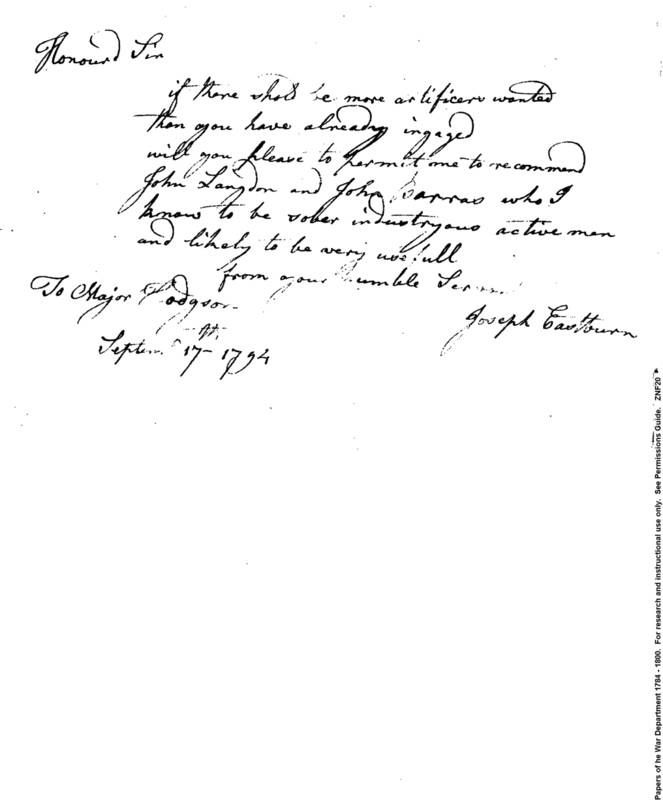 Honourd Sir
if there shold be more artificers wanted
than you have already ingaged
will you please to permit me to recommend
John Langdon and John Barras who I
know to be sober industryous active men
and likely to be very usefull
from your humble
To Major Hodgson
Joseph Eastburn
17th 1794
Papers of he War Department 1784 - 1800. For research and instructional use only. See Permissions Guide. ZNF20